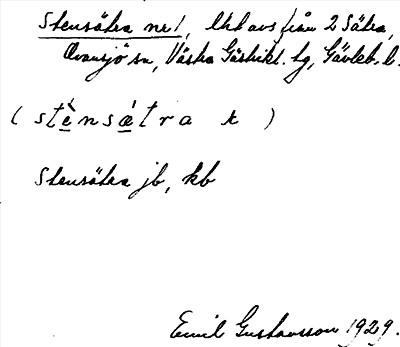 Stensätra nr 1, lht avs från 2 Sätra,
Ovansjö sn, Västra Gästrikl. tg, Gävleb. l.
( stènsǽtra t )
Stensätra jb, kb
Emil Gustavsson 1929.